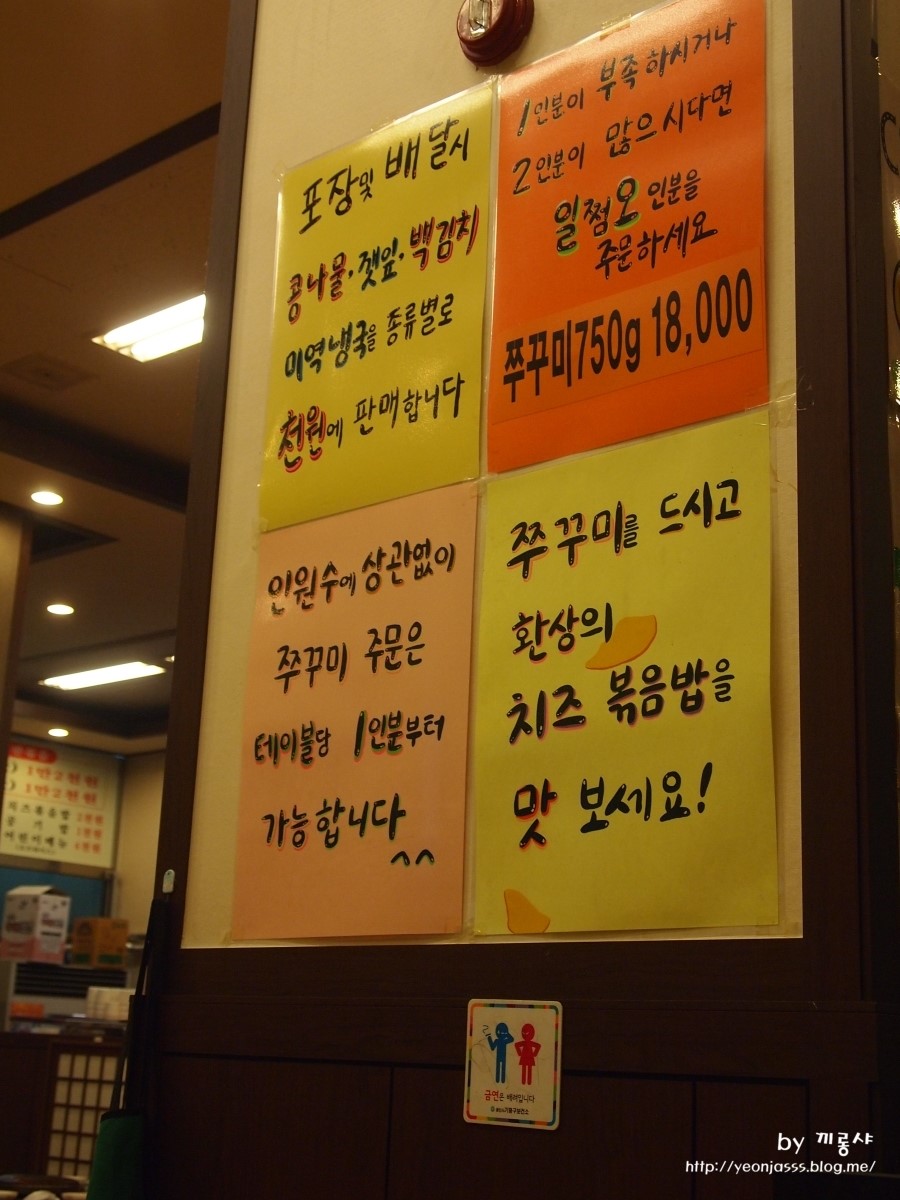 포장및 배달시
콩나물·깻잎·백김치
미역냉국을 종류별로
천원에 판매합니다
1인분이 부족하시거나
2인분이 많으시다면
일쩜오 인분을
주문하세요
쭈꾸미750g 18,000
인원수에 상관없이
쭈꾸미 주문은
테이블당 1인분부터
가능합니다
^^
쭈꾸미를 드시고
환상의
치즈 볶음밥을
맛 보세요!
1만2천원
1만2천원
치즈볶음밥
공기밥
어린이메뉴
금연은 배려입니다
by 끼룡샤
http://yeonjasss.blog.me/